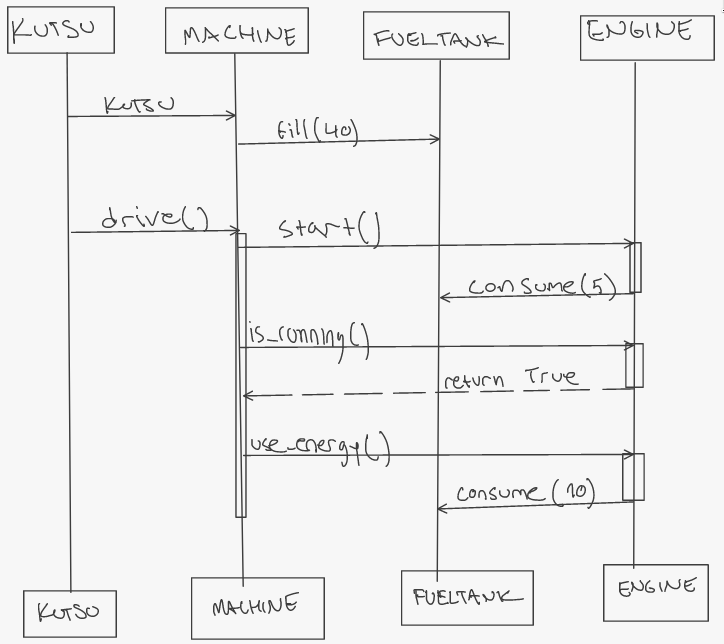 KUTSU
MACHINE
FUELTANK
ENGINE
KUTSU
fill(40)
drive()
start()
consume(5)
is_running()
return True
use_energy()
consume(10)
KUTSU
MACHINE
FUELTANK
ENGINE